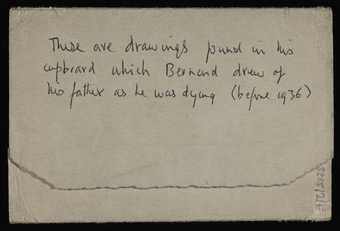 These are drawings found in his
cupboard which Bernard drew of
his father as he was dying (before 1936)